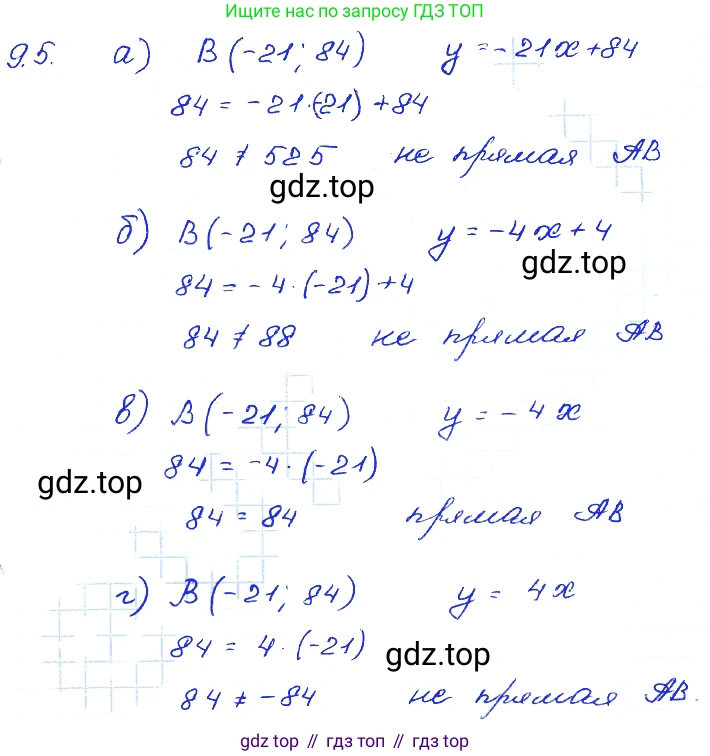 Ищите нас по запросу ГДЗ ТОП
9.5. а) B(-21; 84) y=-21x+84
84 = -21·(-21)+84
84 ≠ 525 не прямая AB
gdz.top
б) B(-21; 84) y=-4x+4
gdz.top
84 = -4·(-21)+4
84 ≠ 88 не прямая AB
в) B(-21; 84) y=-4x
84 = -4·(-21)
gdz.top
84 = 84 прямая AB
г) B(-21; 84) y= 4x
84 = 4·(-21)
gdz.top
84 ≠ -84 не прямая AB.
gdz top // гдз топ // гдз.top